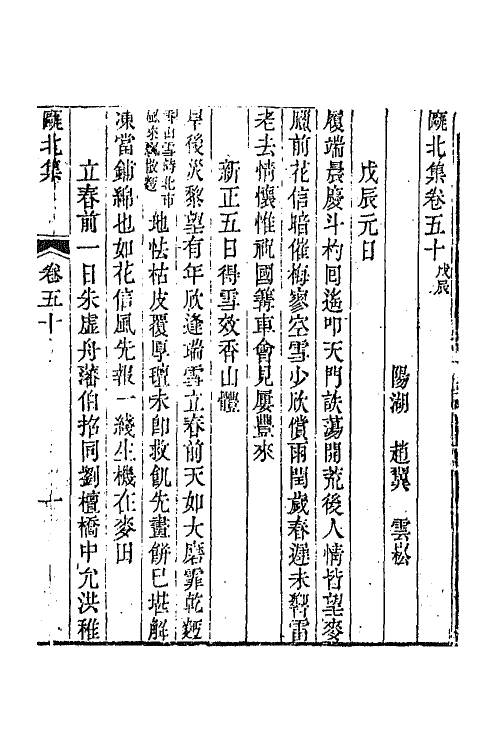 甌北集卷五十 戊辰
陽湖 趙翼 雲崧
戊辰元日
履端晨慶斗杓回遙叩天門詄蕩開荒後人情皆望麥
臘前花信暗催梅寥空雪少欣償雨閏歲春遲未響雷
老去情懷惟祝國篝車會見屢豐來
新正五日得雪效香山體
旱後災黎望有年欣逢瑞雪立春前天如大磨霏乾麪
香山雪詩北市風來飄散麪 地怯枯皮覆厚氊未即救飢先畫餅已堪解
凍當鋪綿也如花信風先報一綫生機在麥田
立春前一日朱虛舟藩伯招同劉檀橋中允洪稚
甌北集 卷五十 一